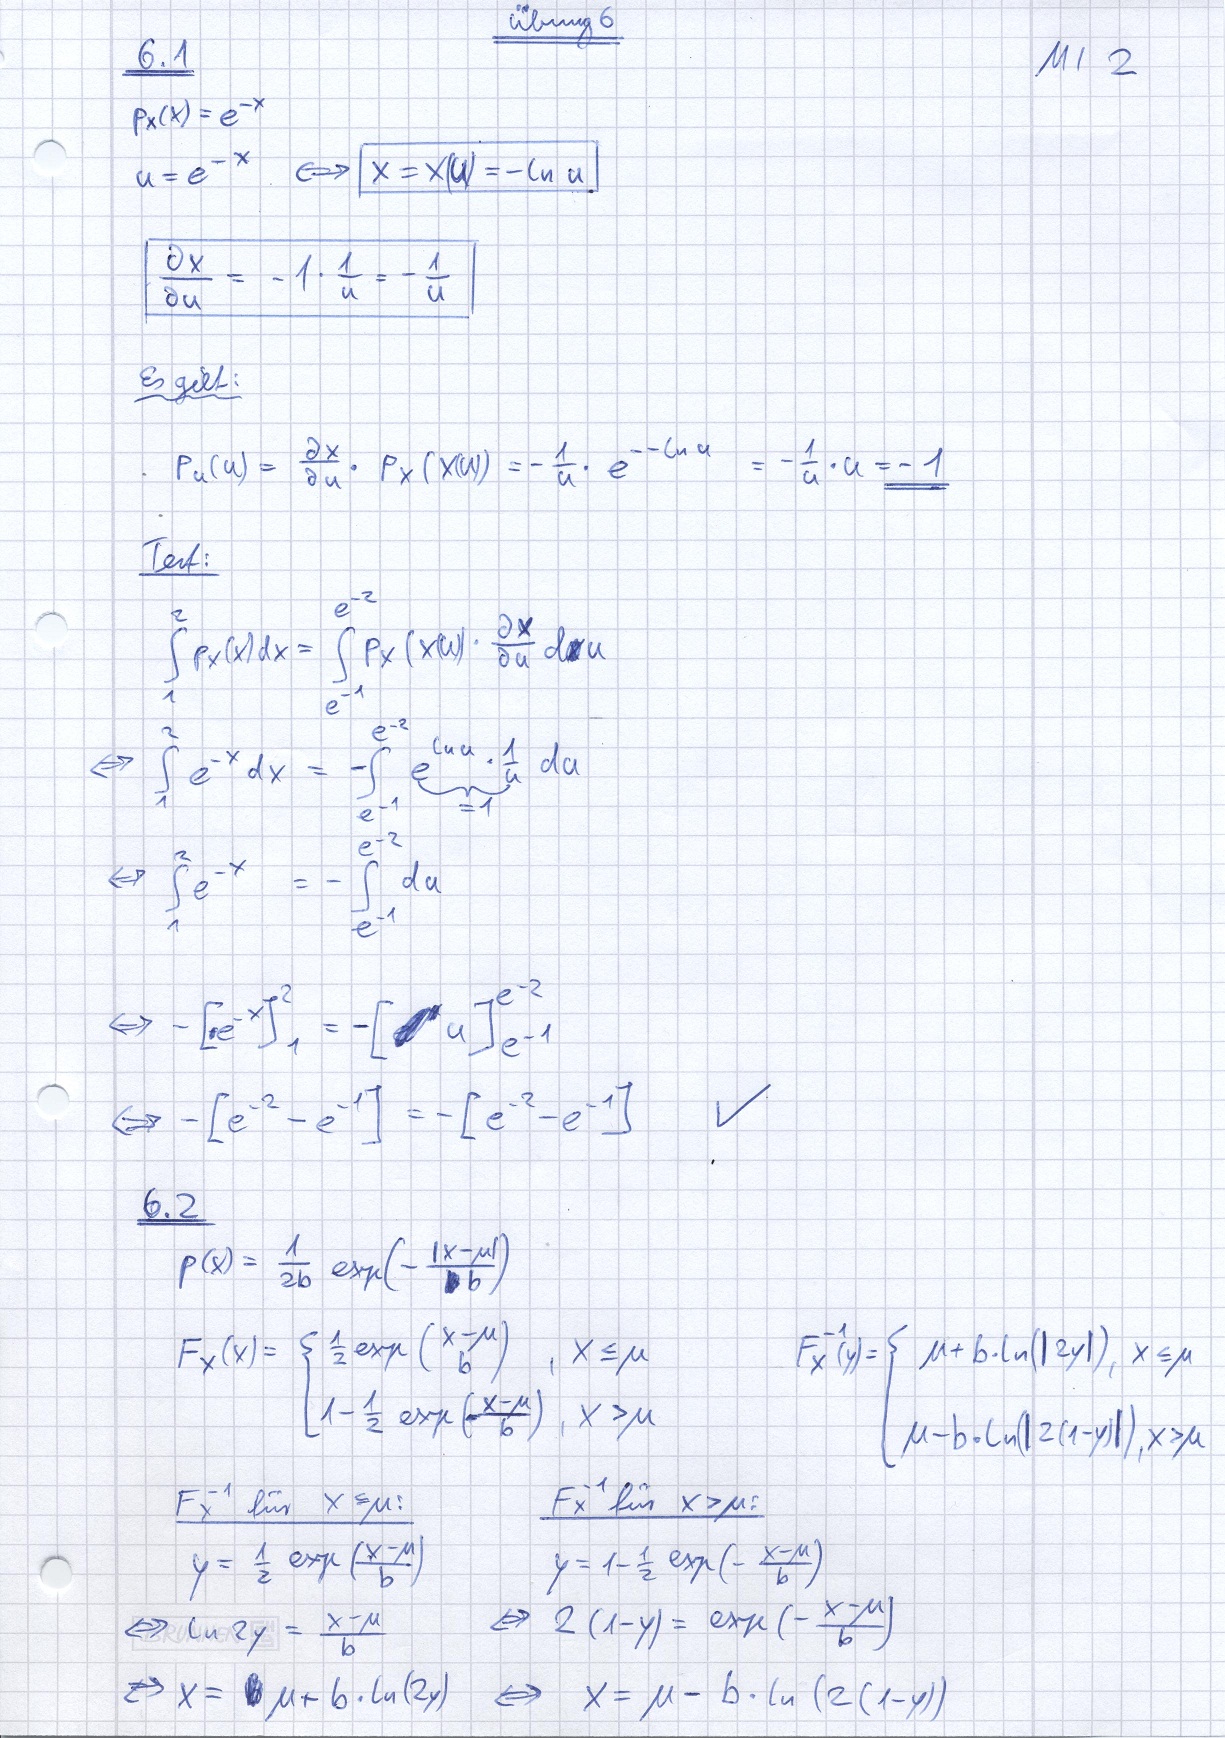 Übung 6
6.1
MI 2
p_X(x) = e^{-x}
u = e^{-x} ⟺ x = x(u) = -ln u
∂x/∂u = -1 · 1/u = -1/u
Es gilt:
p_u(u) = ∂x/∂u · p_X(x(u)) = -1/u · e^{--ln u} = -1/u · u = -1
Test:
∫_1^2 p_X(x) dx = ∫_{e^{-1}}^{e^{-2}} p_X(x(u)) · ∂x/∂u du
⟺ ∫_1^2 e^{-x} dx = -∫_{e^{-1}}^{e^{-2}} e^{ln u} · 1/u du
=1
⟺ ∫_1^2 e^{-x} = -∫_{e^{-1}}^{e^{-2}} du
⟺ -[e^{-x}]_1^2 = -[u]_{e^{-1}}^{e^{-2}}
⟺ -[e^{-2} - e^{-1}] = -[e^{-2} - e^{-1}] ✓
6.2
p(x) = 1/2b exp(-|x-μ|/b)
F_X(x) = { 1/2 exp(x-μ/b), x ≤ μ
1 - 1/2 exp(-x-μ/b), x > μ
F_X^{-1}(y) = { μ + b·ln(|2y|), x ≤ μ
μ - b·ln(|2(1-y)|), x > μ
F_X^{-1} für x ≤ μ:
y = 1/2 exp(x-μ/b)
⟺ ln 2y = x-μ/b
⟺ x = μ + b·ln(2y)
F_X^{-1} für x > μ:
y = 1 - 1/2 exp(-x-μ/b)
⟺ 2(1-y) = exp(-x-μ/b)
⟺ x = μ - b·ln(2(1-y))